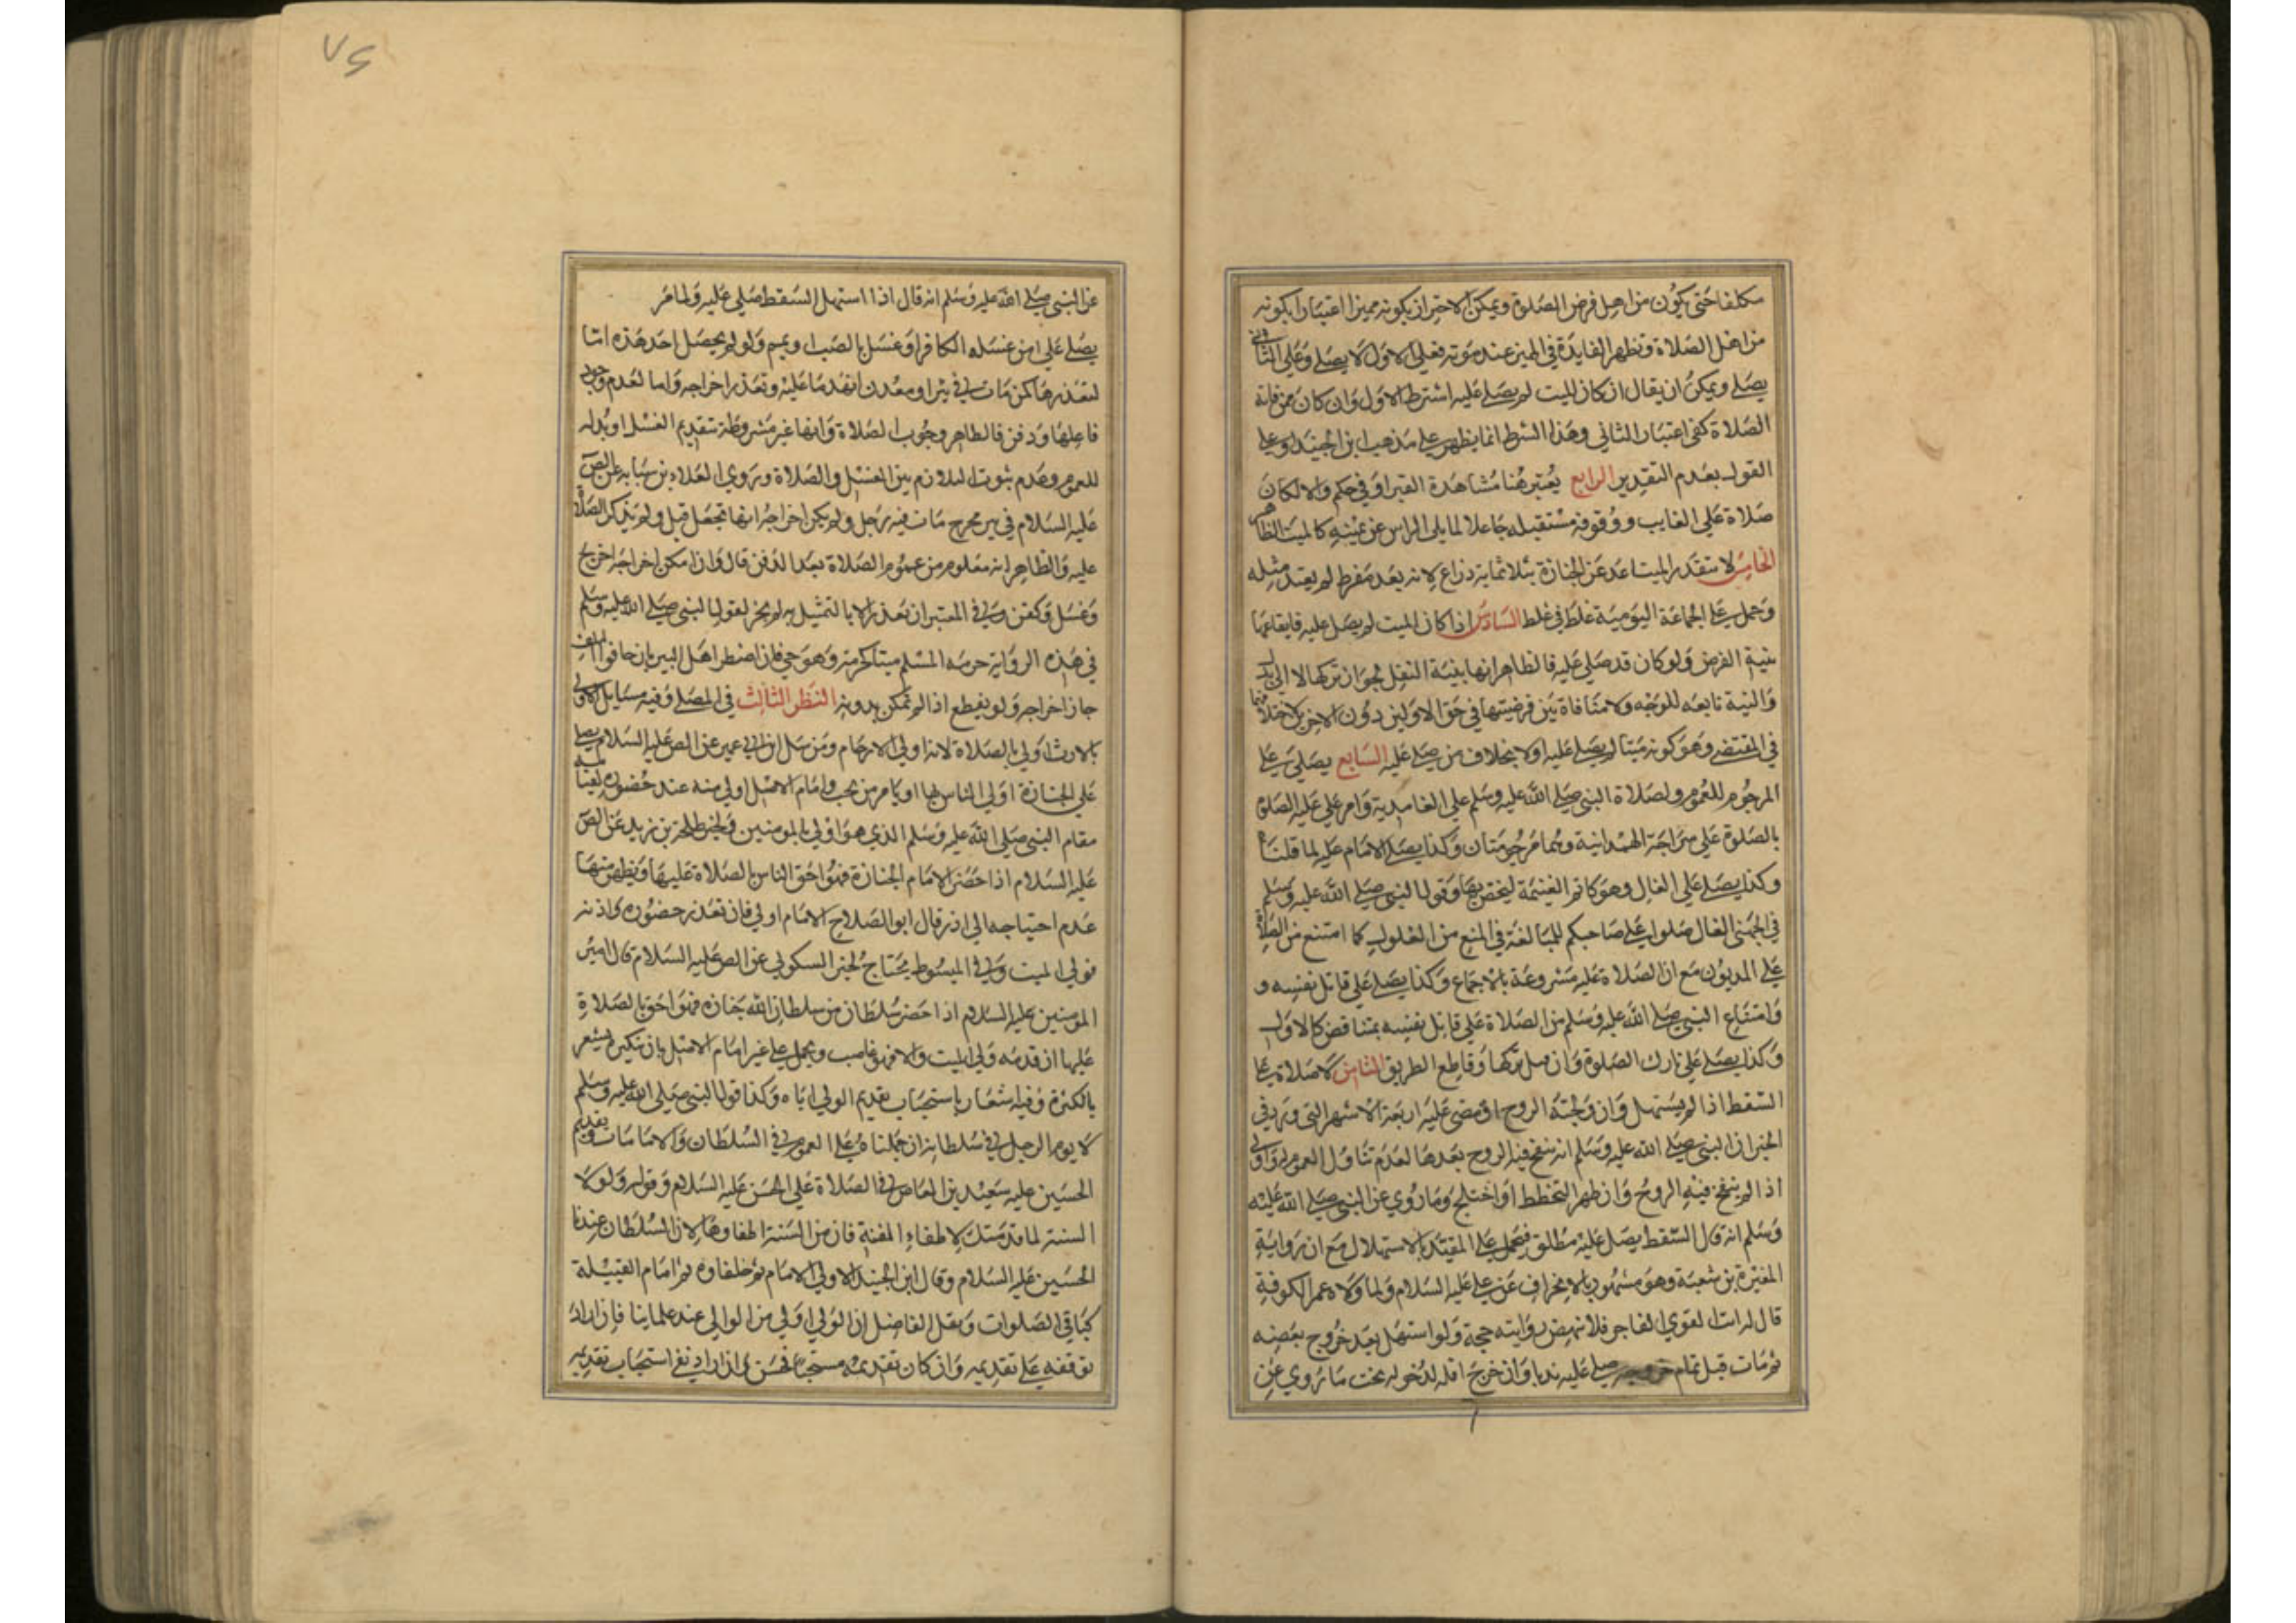 مكلفا حتى يكون من اهل فرض الصلوة ويمكن الاجتزاز بكونه مميزا اعتبارا بكونه
من اهل الصلاة وتظهر الفايدة في المميز عند موته فعلى الاول لا يصلى وعلى الثاني
يصلى ويمكن ان يقال ان كان الميت لم يصل عليه اشترط الاول وان كان ممن فاته
الصلاة كفى اعتبار الثاني وهذا الشرط انما يظهر على مذهب ابن الجنيد وعلى
القول بعدم التقدير الرابع يعتبر هنا مشاهدة القبر او في حكمه والا لكان
صلاة على الغايب ووقوفه مستقبله جاعلا لما يلي الراس عن يمينه كالميت الظاهر
الخامس لا تتقدر المتباعد عن الجنازة بثلاثماية ذراع لانه بعد مفرط لم يعتد مثله
وحمل على الجماعة اليومية غلط في غلط السادس اذا كان الميت لم يصل عليه فايقاعها
بنية الفرض ولو كان قد صلي عليه فالظاهر انها بنية النفل لجواز تركها لا الى بدل
والنية تابعه للوجه ولا منافاة بين فرضيتها في حق الاولين دون الاخرين لاختلافهما
في المقتضى وهو كونه ميتا لم يصل عليه اولا بخلاف من صلى عليه السابع يصلى على
المرجوم للعموم ولصلاة النبي صلى الله عليه وسلم على الغامدية وامر علي عليه الصلوة
بالصلوة على سراجة الهمدانية وهما مرجومتان وكذا يصلى الامام عليه لما قلناه
وكذا يصلى على الغال وهو كاتم الغنيمة ليختص بها وقول النبي صلى الله عليه وسلم
في الجهني الغال صلوا على صاحبكم للمبالغة في المنع من الغلول كما امتنع من الصلاة
على المديون مع ان الصلاة عليه مشروعة بالاجماع وكذا يصلى على قاتل نفسه و
وامتناع النبي صلى الله عليه وسلم من الصلاة على قاتل نفسه بمتناقض كالاول
وكذا يصلى على تارك الصلوة وان قتل بتركها وقاطع الطريق الثامن لا صلاة على
السقط اذا لم يستهل وان ولجته الروح او مضى عليه اربعة الاشهر التي ورد في
الخبر ان النبي صلى الله عليه وسلم انه ينفخ فيه الروح بعدها لعدم تناول العموم له واولى
اذا لم ينفخ فيه الروح وان ظهر التخطط او اختلج وما روي عن النبي صلى الله عليه
وسلم انه قال السقط يصلى عليه مطلق فيحمل على المقيد بالاستهلال مع ان رواية
المغيرة بن شعبة وهو مشهور بالانحراف عن علي عليه السلام ولما ولاه عمر الكوفة
قال له انت القوي الفاجر فلا تنهض روايته حجة ولو استهل بعد خروج بعضه
ثم مات قبل تمام خروجه صلى عليه ندبا وان خرج اقله لدخوله تحت ما روي عن
عن النبي صلى الله عليه وسلم انه قال اذا استهل السقط صلي عليه ولما مر
يصلى على من غسله الكافر او غسل بالصب او يمم ولو لم يحصل احد هذه اما
لتعذرها كمن مات في بئر او معدن انهدما عليه وتعذر اخراجه واما لعدم وجود
فاعلها ودفن فالظاهر وجوب الصلاة وانها غير مشروطة بتقديم الغسل او بدله
للعموم وعدم ثبوت التلازم بين الغسل والصلاة وروى العلاء بن سيابه عن الص
عليه السلام في بير محرج مات فيه رجل ولم يكن اخراجه انها تجعل قبرا ولم يذكر الصلاة
عليه والظاهر انه معلوم من عموم الصلاة بعد الدفن قال وان امكن اخراجه اخرج
وغسل وكفن وفي المعتبر ان تعذر الا بالتمثيل به لم يجز لقول النبي صلى الله عليه وسلم
في هذه الرواية حرمه المسلم ميتا كحرمته وهو حي فان اضطر اهل البير بان خافوا التلف
جاز اخراجه ولو بقطع اذا لم تمكن بدونه النظر الثالث في المصلي وفيه مسايل الاولى
بالارث اولى بالصلاة لانه اولى الارحام ومرسل ابن ابي عمير عن الص عليه السلام يصلي
على الجنازة اولى الناس بها او يامر من يحب وامام الاصل اولى منه عند حضوره لقيامه
مقام النبي صلى الله عليه وسلم الذي هو اولى بالمومنين ولخبر طلحة بن زيد عن الص
عليه السلام اذا حضر الامام الجنازة فهو احق الناس بالصلاة عليها ويظهر منها
عدم احتياجه الى اذن وقال ابو الصلاح الامام اولى فان تعذر حضوره واذنه
فولي الميت وفي الميسوط يحتاج لخبر السكوني عن الص عليه السلام قال امير
المومنين عليه السلام اذا حضر سلطان من سلطان الله جنازه فهو احق بالصلاة
عليها ان قدمه ولي الميت والا فهو غاصب ويحمل على غير امام الاصل بان تنكيره يشعر
بالكثرة وفيه اشعار باستحباب تقديم الولي اياه وكذا قول النبي صلى الله عليه وسلم
لا يوم الرجل في سلطانه ان حملناه على العموم في السلطان والامامات وتقديم
الحسين عليه سعيد بن العاص في الصلاة على الحسن عليه السلام وقوله ولولا
السنة لما قدمتك لاطفاء الفتنة فان من السنة اطفاوها لان السلطان عندنا
الحسين عليه السلام وقال ابن الجنيد الاولى الامام ثم خلفاوه ثم امام القبيلة
كباقي الصلوات ونقل الفاضل ان الولي اولى من الوالي عند علماينا فان اراد
توقفه على تقديمه وان كان تقديمه مستحبا فحسن وان اراد نفي استحباب تقديمه